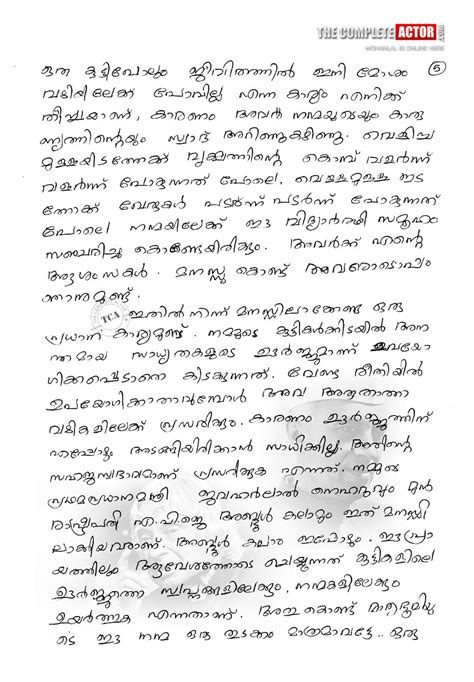 THE COMPLETE ACTOR .COM
MOHANLAL IS ONLINE HERE
5
ഒരു കുട്ടിപോലും ജീവിതത്തിൽ ഇനി മോശം
വഴിയിലേക്ക് പോവില്ല എന്ന കാര്യം എനിക്ക്
തീർച്ചയാണ്, കാരണം അവർ നന്മയുടെയും കാരു
ണ്യത്തിന്റെയും സ്വാദ് അറിഞ്ഞുകഴിഞ്ഞു. വെളിച്ച
മുള്ളയിടത്തേക്ക് വൃക്ഷത്തിന്റെ കൊമ്പ് വളർന്ന്
വളർന്ന് പോകുന്നത് പോലെ, വെള്ളമുള്ള ഇട
ത്തേക്ക് വേരുകൾ പടർന്ന് പടർന്ന് പോകുന്നത്
പോലെ നന്മയിലേക്ക് ഈ വിദ്യാർത്ഥി സമൂഹം
സഞ്ചരിച്ചു കൊണ്ടേയിരിക്കും. അവർക്ക് എന്റെ
ആശംസകൾ. മനസ്സു കൊണ്ട് അവരോടൊപ്പം
ഞാനുമുണ്ട്.
TCA
ഇതിൽ നിന്ന് മനസ്സിലാക്കേണ്ട ഒരു
പ്രധാന കാര്യമുണ്ട്. നമ്മുടെ കുട്ടികൾക്കിടയിൽ അന
ന്തമായ സാധ്യതകളുടെ ഊർജ്ജമാണ് ഉപയോ
ഗിക്കപ്പെടാതെ കിടക്കുന്നത്. വേണ്ട രീതിയിൽ
ഉപയോഗിക്കാതാവുമ്പോൾ അവ അരുതാത്ത
വഴികളിലേക്ക് പ്രസരിക്കും. കാരണം ഊർജ്ജത്തിന്
എപ്പോഴും അടങ്ങിയിരിക്കാൻ സാധിക്കില്ല, അതിന്റെ
സഹജസ്വഭാവമാണ് പ്രസരിക്കുക എന്നത്. നമ്മുടെ
പ്രഥമപ്രധാനമന്ത്രി ജവഹർലാൽ നെഹ്റുവും മുൻ
രാഷ്ട്രപതി എ.പി.ജെ അബ്ദുൾ കലാമും ഇത് മനസ്സി
ലാക്കിയവരാണ്. അബ്ദുൾ കലാം ഇപ്പോഴും, ഈ പ്രാ
യത്തിലും ആവേശത്തോടെ ചെയ്യുന്നത് കുട്ടികളിലെ
ഊർജ്ജത്തെ സ്വപ്നങ്ങളിലേക്കും, നന്മകളിലേക്കും
ഉയർത്തുക എന്നതാണ്. അതു കൊണ്ട് മാതൃഭൂമിയു
ടെ ഈ നന്മ ഒരു തുടക്കം മാത്രമാവട്ടെ.. ഒരു